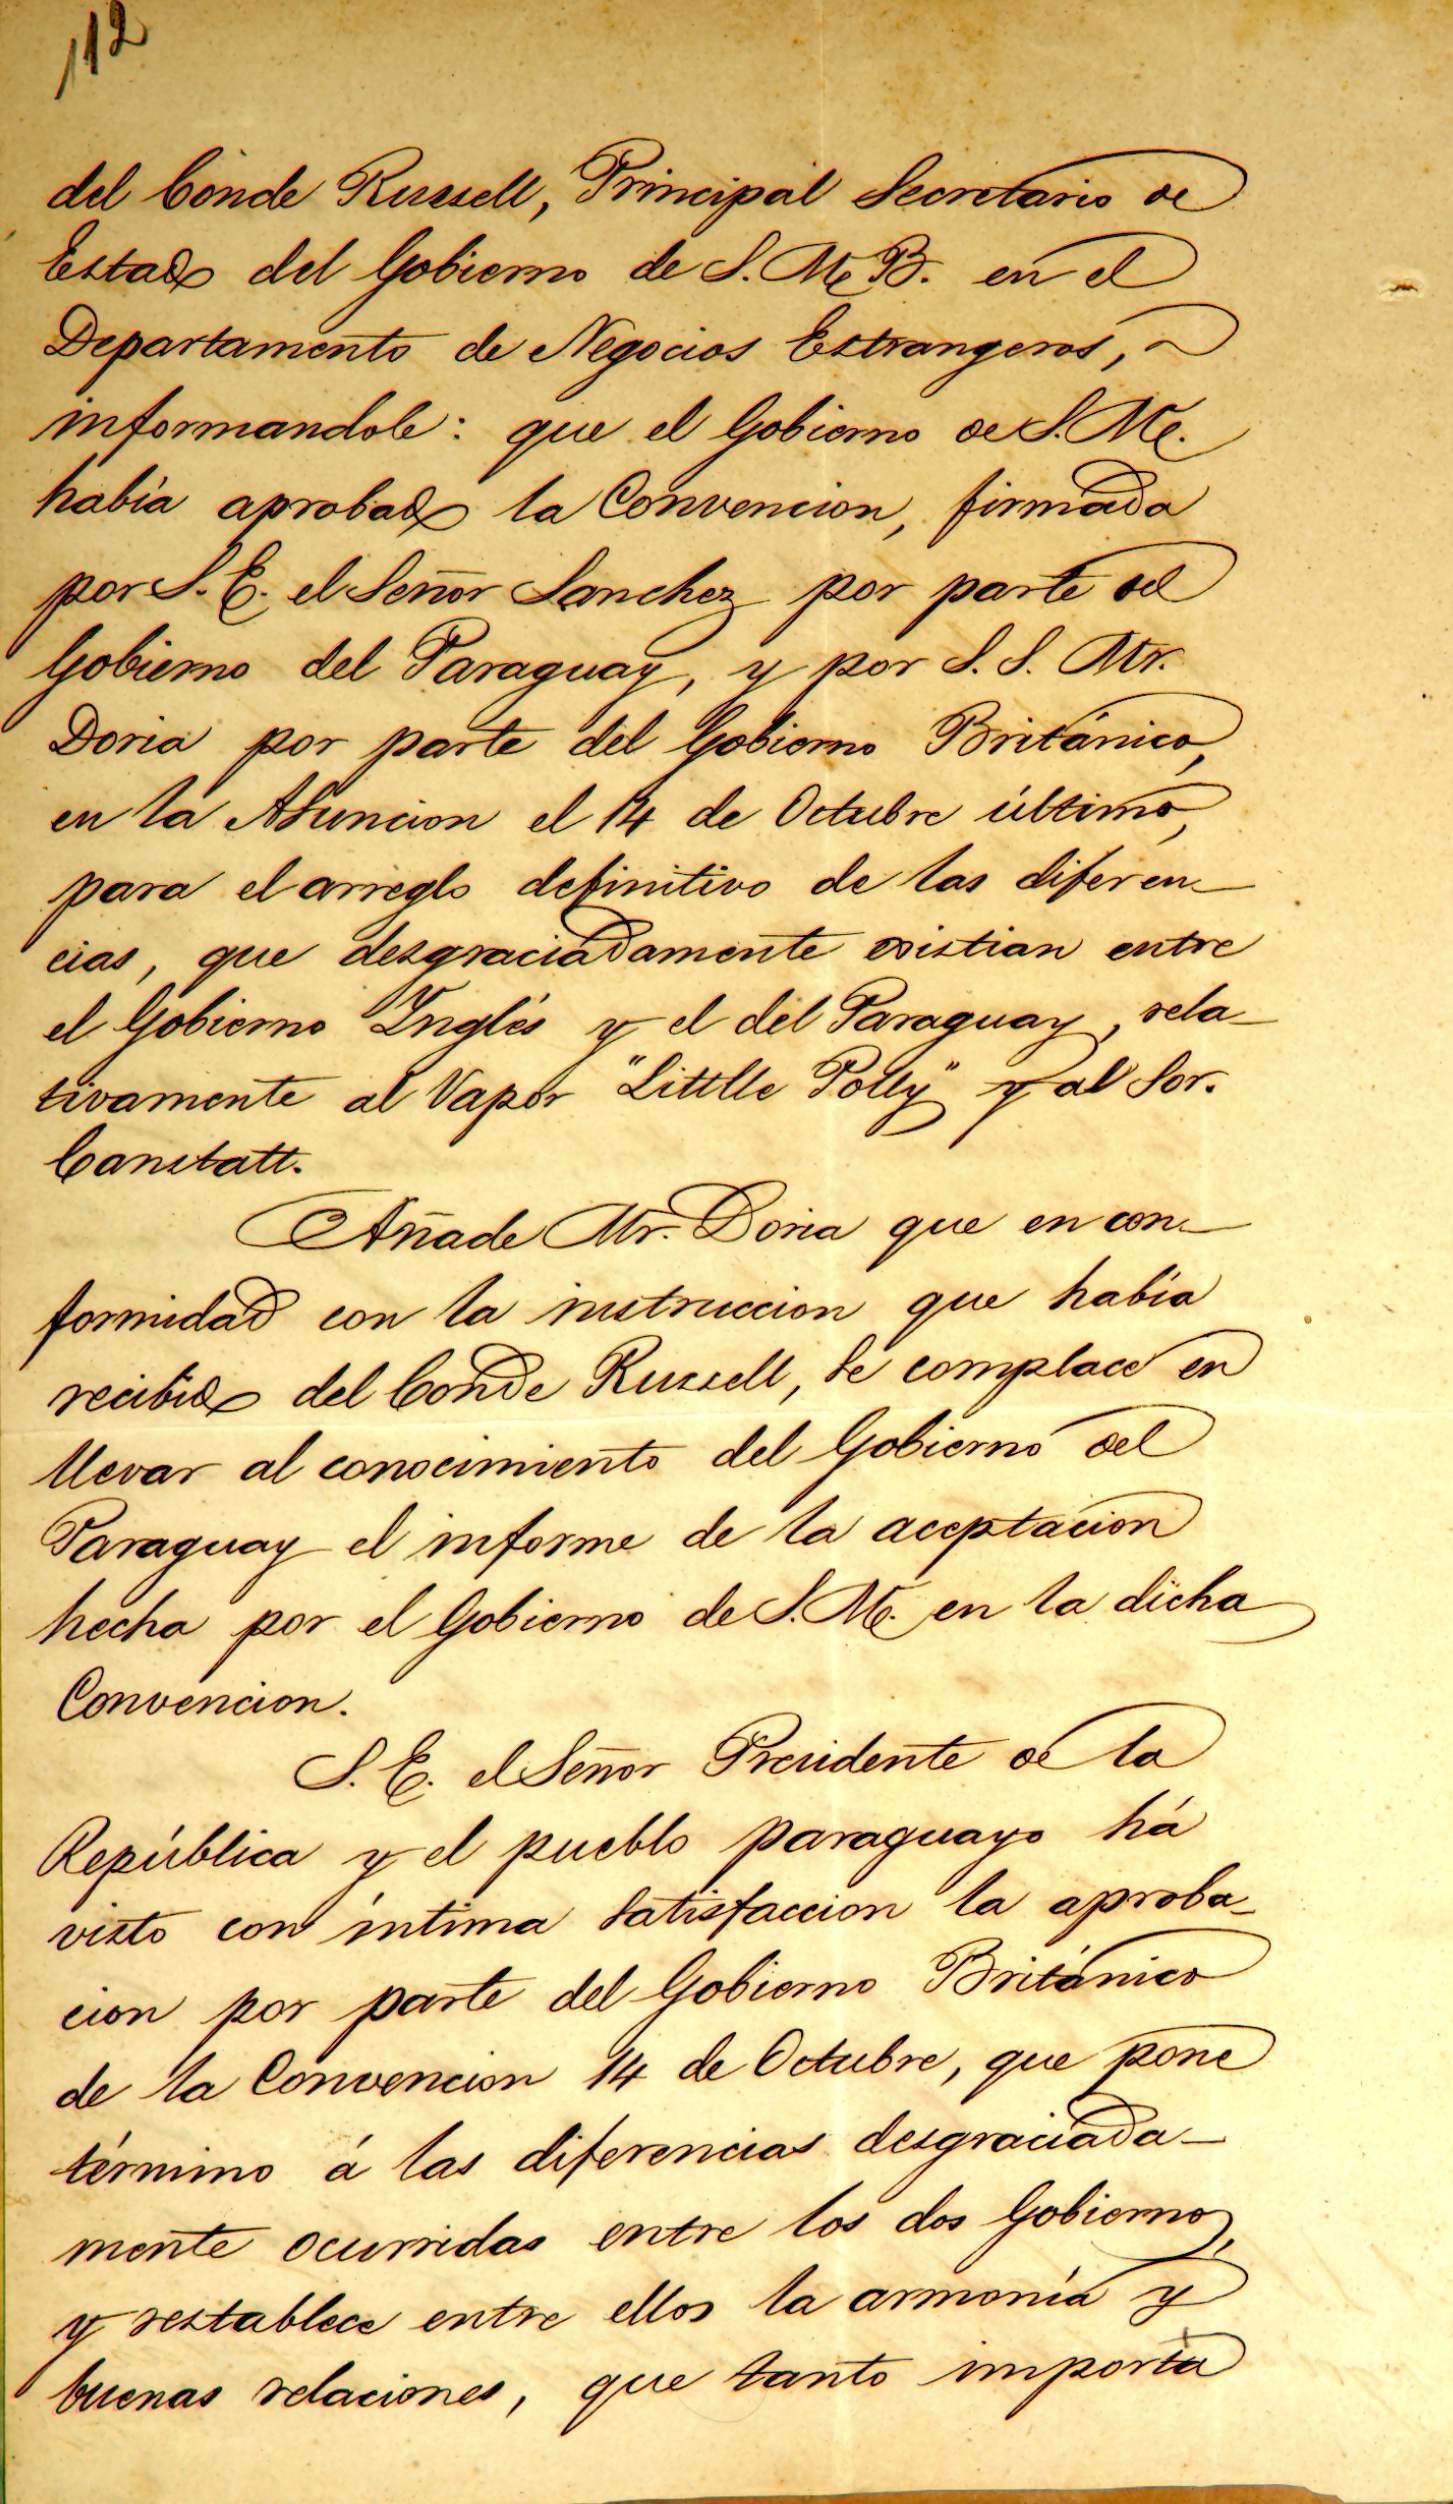 112
del Conde Russell, Principal Secretario de
Estado del Gobierno de S. M. B. en el
Departamento de Negocios Estrangeros,
informandole: que el Gobierno de S. M.
había aprobado la Convencion, firmada
por S. E. el Señor Sanchez por parte del
Gobierno del Paraguay, y por S. S. Mr.
Doria por parte del Gobierno Británico,
en la Asuncion el 14 de Octubre último,
para el arreglo definitivo de las diferen-
cias, que desgraciadamente existian entre
el Gobierno Inglés y el del Paraguay, rela-
tivamente al Vapor "Littlle Polly" y al Sor.
Canstatt.
Añade Mr. Doria que en con-
formidad con la instruccion que había
recibido del Conde Russell, se complace en
llevar al conocimiento del Gobierno del
Paraguay el informe de la aceptacion
hecha por el Gobierno de S. M. en la dicha
Convencion.
S. E. el Señor Presidente de la
República y el pueblo paraguayo há
visto con íntima satisfaccion la aproba-
cion por parte del Gobierno Británico
de la Convencion 14 de Octubre, que pone
término á las diferencias desgraciada-
mente ocurridas entre los dos Gobiernos,
y restablece entre ellos la armonía y
buenas relaciones, que tanto importa